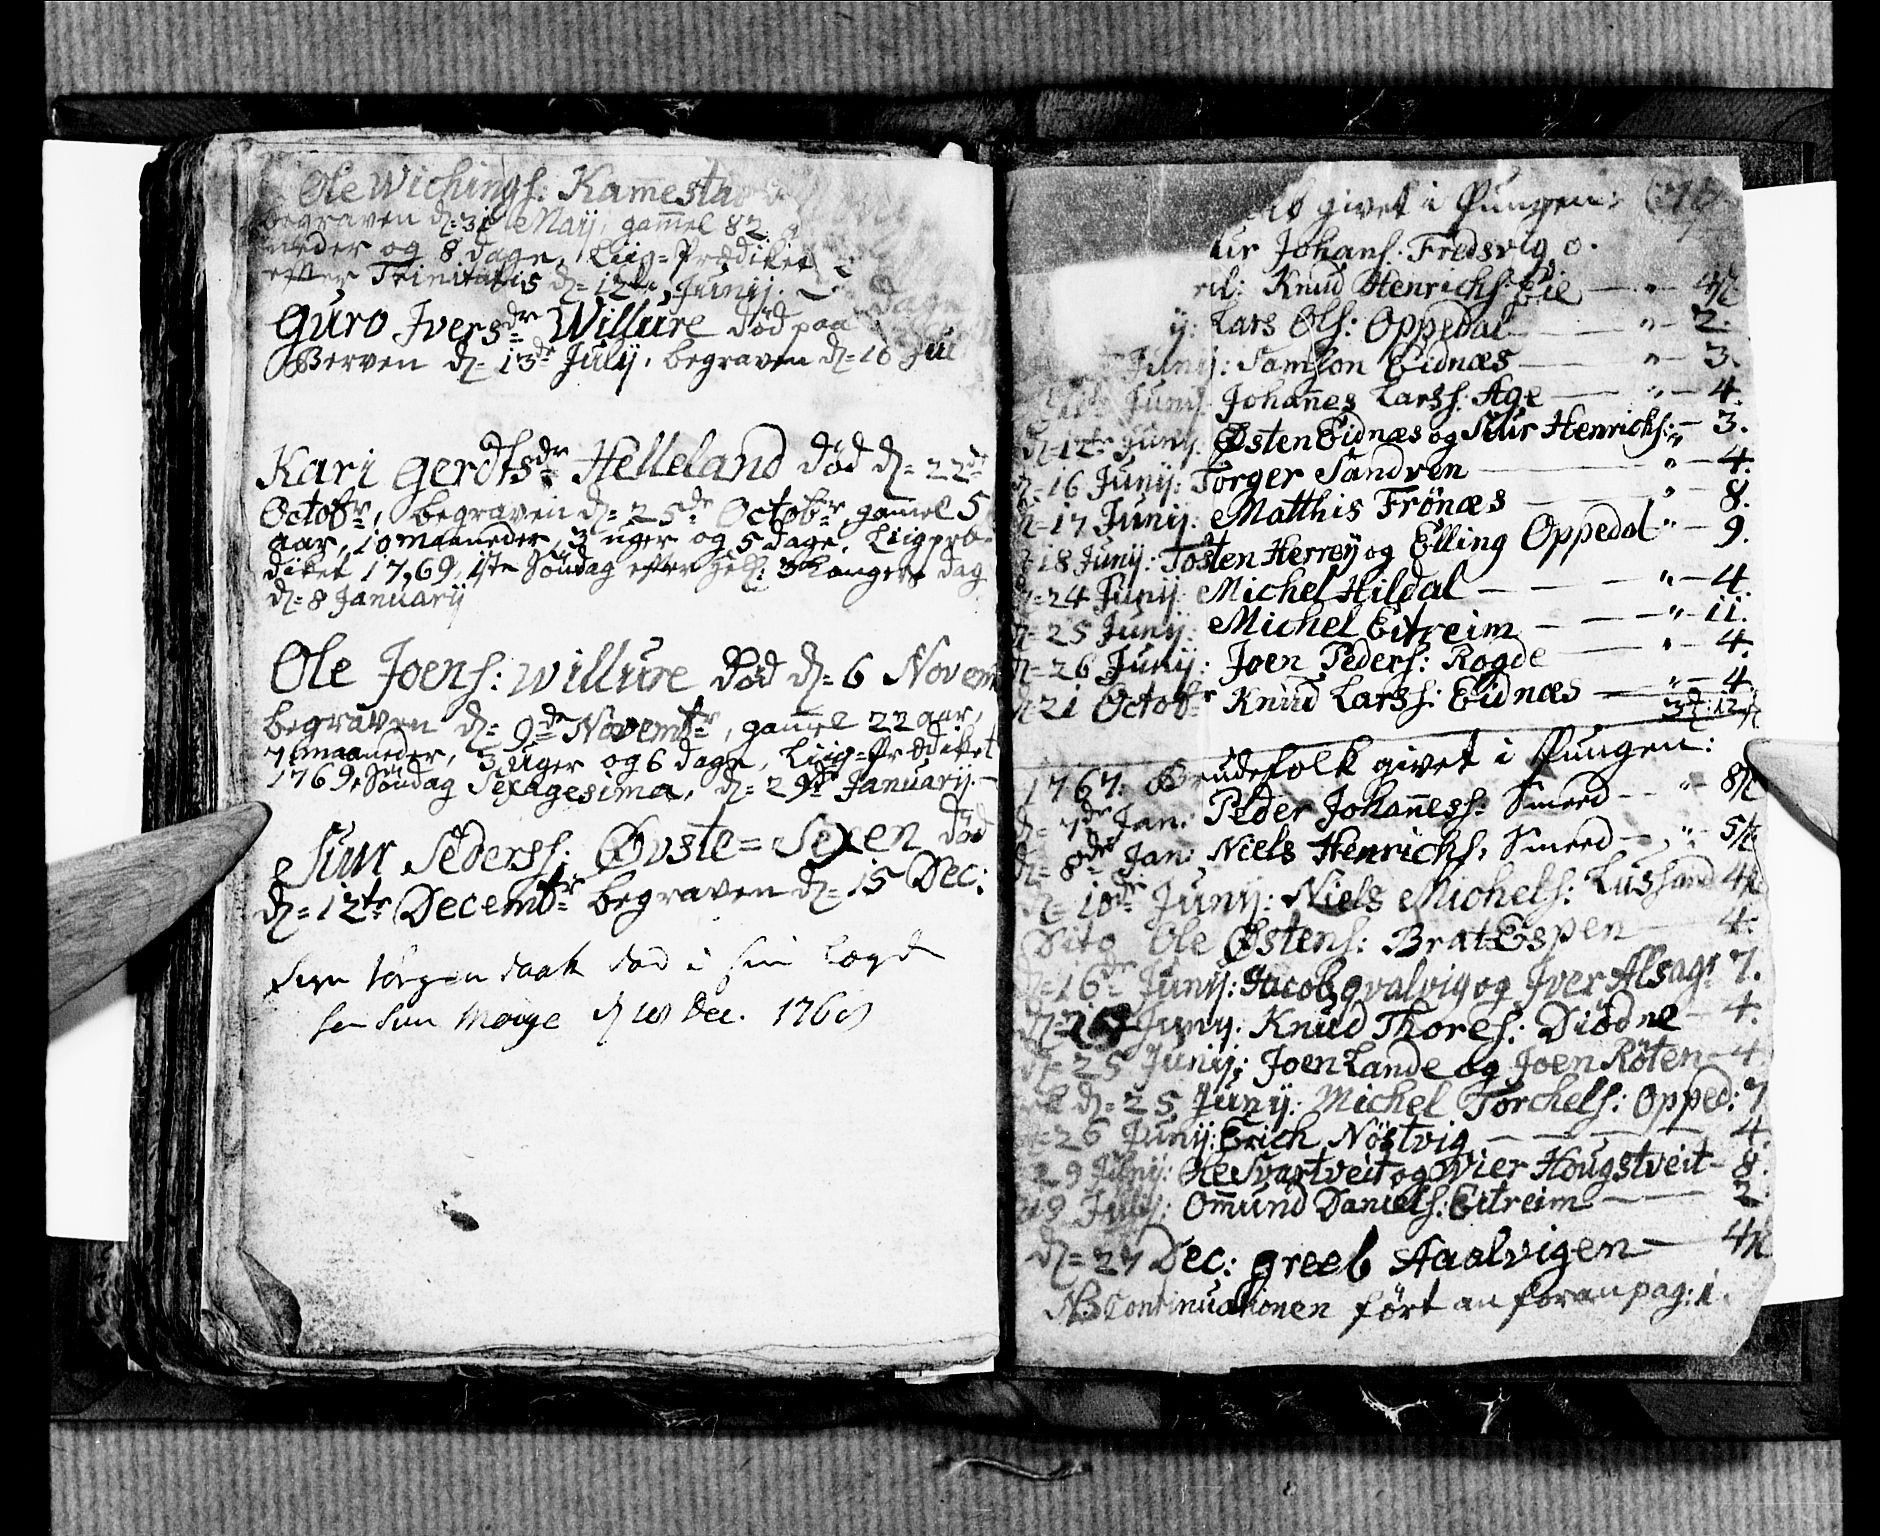 Ole Wichings: Kamesta
begraven d: 31 Maij, gam̄el 82
neder og 8 dage, Liig=Prædiket
efter Trinitatis d: 12te Junij.
Guro Iversdr Willure død paa
Berven d: 13de Julij, begraven d: 16 Jul
Kari Gerdtsdr Helleland død d: 22de
Octobr, begraven d: 25de Octobr, gam̄el 5
aar, 10 maaneder, 3 uger og 5 dage. Liigpræ-
diket 1769, 1ste Søndag efter Hell: 3 Konger dag
d: 8 Januarij
Ole Joens: Willure død d: 6 Novem
begraven d: 9de Novembr, gam̄el 22 aar,
7 maaneder, 3 uger og 6 dage, Liig=Prædiket
1769, Søndag Sexagesima, d: 29de Januarij.
Siur Peders: Øvste=Sexen død
d: 12te Decembr begraven d: 15 Dec:
død i sin
1768
givet i Pungen:
ur Johans: Fredsvig o.
ril: Knud Henrichs: Eie — " — 4 ß
ij: Lars Ols: Oppedal — " — 2.
Junij: Samson Eidnæs — " — 3.
Junij. Johan̄es Larss: Age — " — 4.
d: 12te Junij. Østen Eidnæs og Siur Henrichs: — " — 3.
d: 16 Junij: Torger Sandven — " — 4.
d: 17 Junij. Matthis Frönæs — " — 8.
d: 18 Junij: Tosten Herrøy og Elling Oppedal " — 9.
d: 24 Junij: Michel Hildal — " — 4.
d: 25 Junij: Michel Eitreim — " — 11.
d: 26 Junij: Joen Peders: Rogde — " — 4.
d: 21 Octobr Knud Larss: Eidnæs — " — 4
3 : 12 ß
1767: Brudefolk givet i Pungen:
d: 7de Jan: Peder Johan̄ess: Smeed — " — 8 ß
d: 8de Jan: Niels Henrichs: Smeed — " — 5 ß
d: 10de Junij: Niels Michels: Lussand 4 ß
Dito Ole Østens: Brat=Espen — 4.
d: 16de Junij: Jacob Qvalvig og Iver Alsag: 7.
Junij: Knud Thores: Diödne — 4.
d: 25 Junij: Joen Lande og Joen Röten — 4.
d: 25 Junij: Michel Torchels: Opped: 7
d: 26 Junij: Erich Nöstvig — 4.
29 Junij: Ole Svartveit og Wier Hougstveit — 8.
Julij: Om̄und Daniels: Eitreim — 2
d: 27 Dec: Greeb Aalvigen — 4 ß
NB Continuationen ført an foran pag: 1.